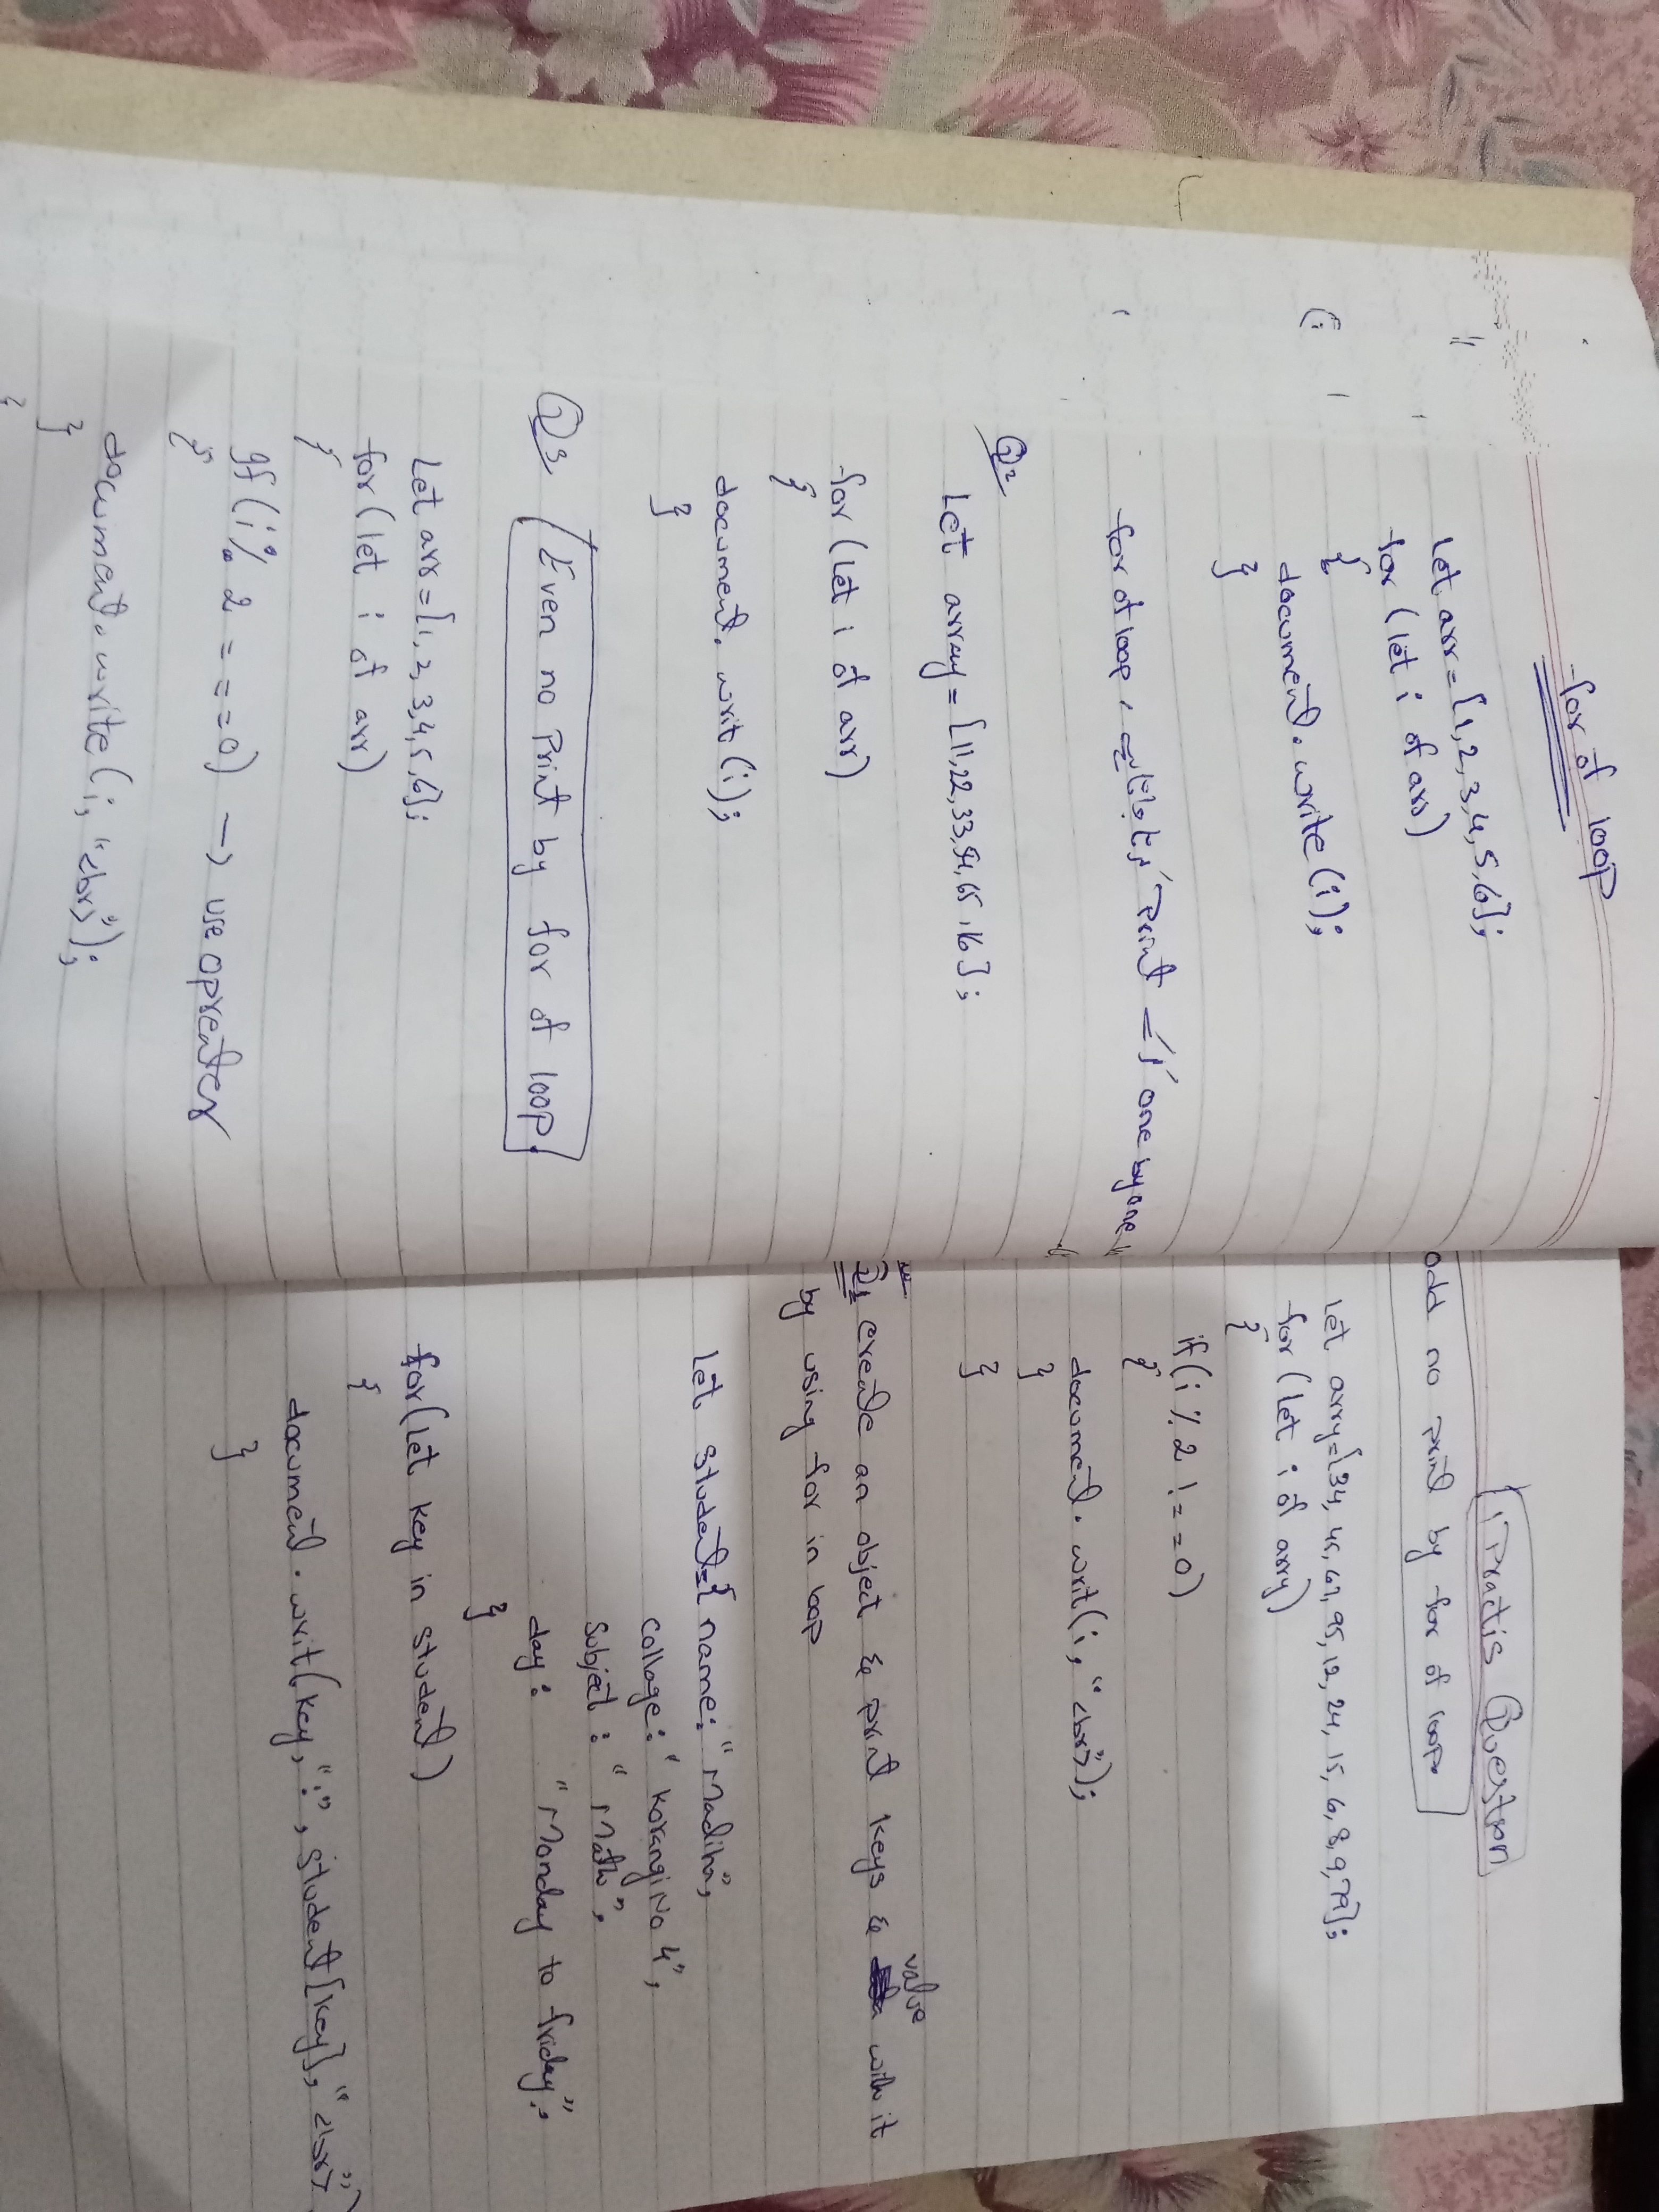 for of loop
Let arr = [1, 2, 3, 4, 5, 6];
for (let i of arr)
{
document.write (i);
}
for of loop, print one by one
Q2
Let array = [11, 22, 33, 54, 65, 16];
for (Let i of arr)
{
document. writ (i);
}
Q3, Even no Print by for of loop.
Let arr = [1, 2, 3, 4, 5, 6];
for (let i of arr)
{
If (i % 2 === 0) → use opreater
{
document.write (i, "<br>");
}
}
Practis Question
odd no print by for of loop.
Let arry = [34, 45, 67, 95, 12, 24, 15, 6, 8, 9, 79];
for (let i of arry)
{
if (i % 2 !== 0)
{
document. writ (i, "<br>");
}
}
Q1 create an object & print keys & value with it
by using for in loop
Let student = { name: "Madiha",
Collage: "Korangi No 4",
Subject: "Math",
day: "Monday to friday",
}
for (let key in student)
{
document. writ (key, ":", student [key], "<br>")
}